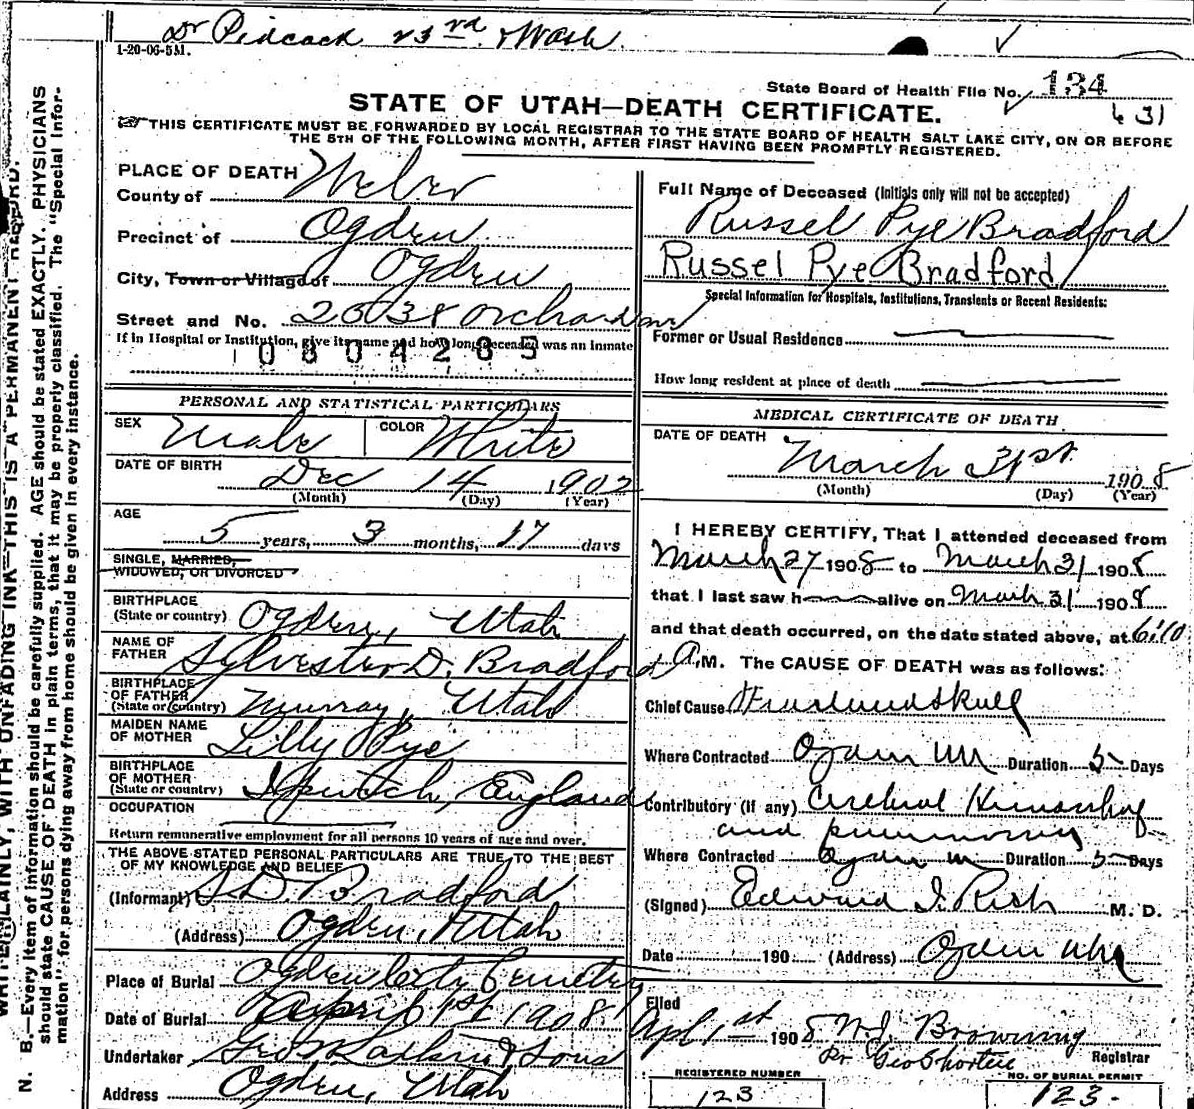 Dr Pidcock 23rd & Wash.
1-20-06-5M.
State Board of Health File No. 134
431
STATE OF UTAH—DEATH CERTIFICATE.
THIS CERTIFICATE MUST BE FORWARDED BY LOCAL REGISTRAR TO THE STATE BOARD OF HEALTH SALT LAKE CITY, ON OR BEFORE
THE 5TH OF THE FOLLOWING MONTH, AFTER FIRST HAVING BEEN PROMPTLY REGISTERED.
PLACE OF DEATH
County of Weber
Precinct of Ogden
City, Town or Village of Ogden
Street and No. Orchard ave
If in Hospital or Institution, give its name and how long deceased was an inmate
0804285
PERSONAL AND STATISTICAL PARTICULARS
SEX Male COLOR White
DATE OF BIRTH Dec 14 1902
(Month) (Day) (Year)
AGE
5 years, 3 months, 17 days
SINGLE, MARRIED,
WIDOWED, OR DIVORCED
BIRTHPLACE
(State or country) Ogden, Utah
NAME OF
FATHER Sylvester D. Bradford
BIRTHPLACE
OF FATHER
(State or country) Murray, Utah
MAIDEN NAME
OF MOTHER Lilly Pye
BIRTHPLACE
OF MOTHER
(State or country) Ipswich, England
OCCUPATION
Return remunerative employment for all persons 10 years of age and over.
THE ABOVE STATED PERSONAL PARTICULARS ARE TRUE TO THE BEST
OF MY KNOWLEDGE AND BELIEF
(Informant) S D. Bradford
(Address) Ogden, Utah
Place of Burial Ogden City Cemetery
Date of Burial April 1st 1908
Undertaker & Sons
Address Ogden, Utah
Full Name of Deceased (Initials only will not be accepted)
Russel Pye Bradford
Russel Pye Bradford
Special Information for Hospitals, Institutions, Transients or Recent Residents:
Former or Usual Residence
How long resident at place of death
MEDICAL CERTIFICATE OF DEATH
DATE OF DEATH
March 31st 1908
(Month) (Day) (Year)
I HEREBY CERTIFY, That I attended deceased from
March 27 1908 to March 31 1908
that I last saw h alive on March 31 1908
and that death occurred, on the date stated above, at 6:10
A.M. The CAUSE OF DEATH was as follows:
Chief Cause Fractured skull
Where Contracted Ogden Utah Duration 5 Days
Contributory (if any) Cerebral Hemorrhage
and pneumonia
Where Contracted Ogden Ut Duration 5 Days
(Signed) Edward I. Rich M. D.
Date 190 (Address) Ogden Utah
Filed
Apl 1st 1908 Browning
Registrar
REGISTERED NUMBER
123
NO. OF BURIAL PERMIT
123
WRITE PLAINLY, WITH UNFADING INK—THIS IS A PERMANENT RECORD.
N. B.—Every item of information should be carefully supplied. AGE should be stated EXACTLY. PHYSICIANS
should state CAUSE OF DEATH in plain terms, that it may be properly classified. The "Special Infor-
mation" for persons dying away from home should be given in every instance.